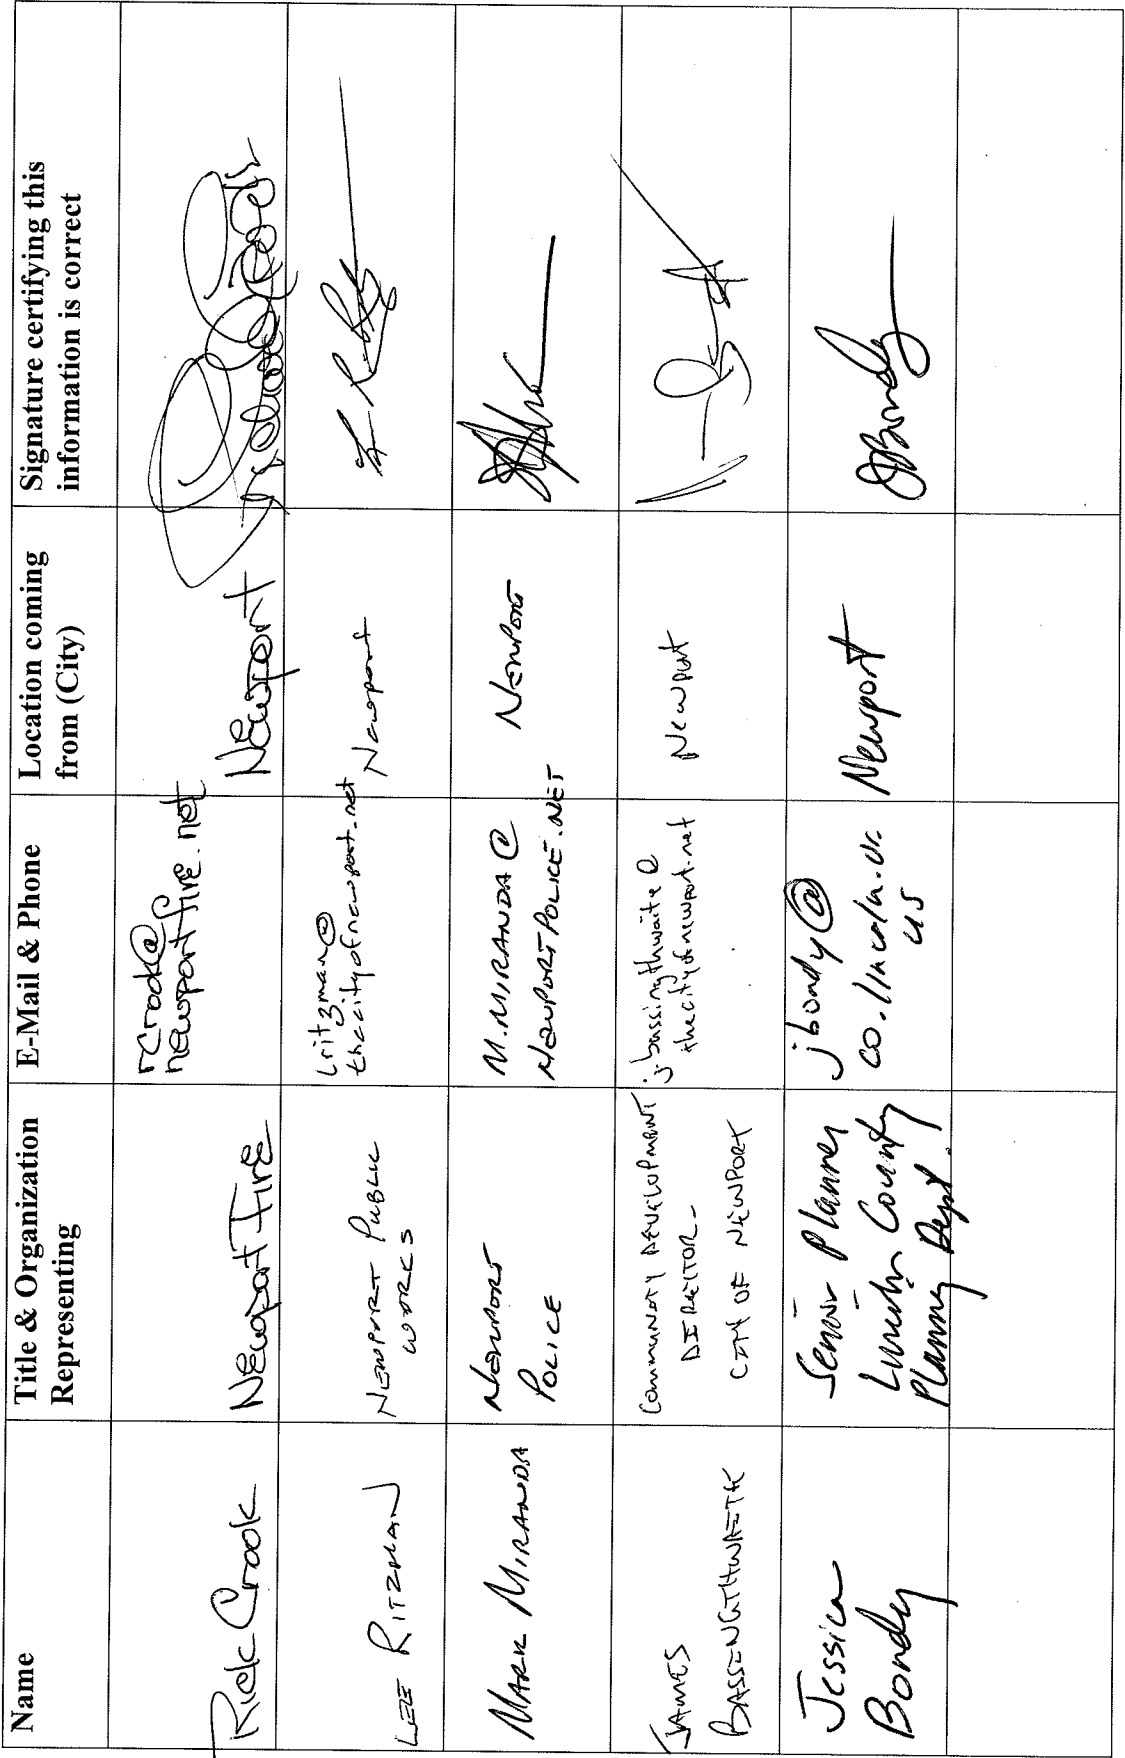 Name
Title & Organization
Representing
E-Mail & Phone
Location coming
from (City)
Signature certifying this
information is correct
Rick Crook
Newport Fire
rcrook@
newportfire.net
Newport
LEE RITZMAN
NEWPORT PUBLIC
WORKS
lritzman@
thecityofnewport.net
Newport
MARK MIRANDA
NEWPORT
POLICE
M.MIRANDA@
NEWPORTPOLICE.NET
NEWPORT
JAMES
BASSINGTHWAITE
COMMUNITY DEVELOPMENT
DIRECTOR-
CITY OF NEWPORT
j.bassingthwaite@
thecityofnewport.net
Newport
Jessica
Bondy
Senior Planner
Lincoln County
Planning Dept.
jbondy@
co.lincoln.or.
us
Newport
JBondy